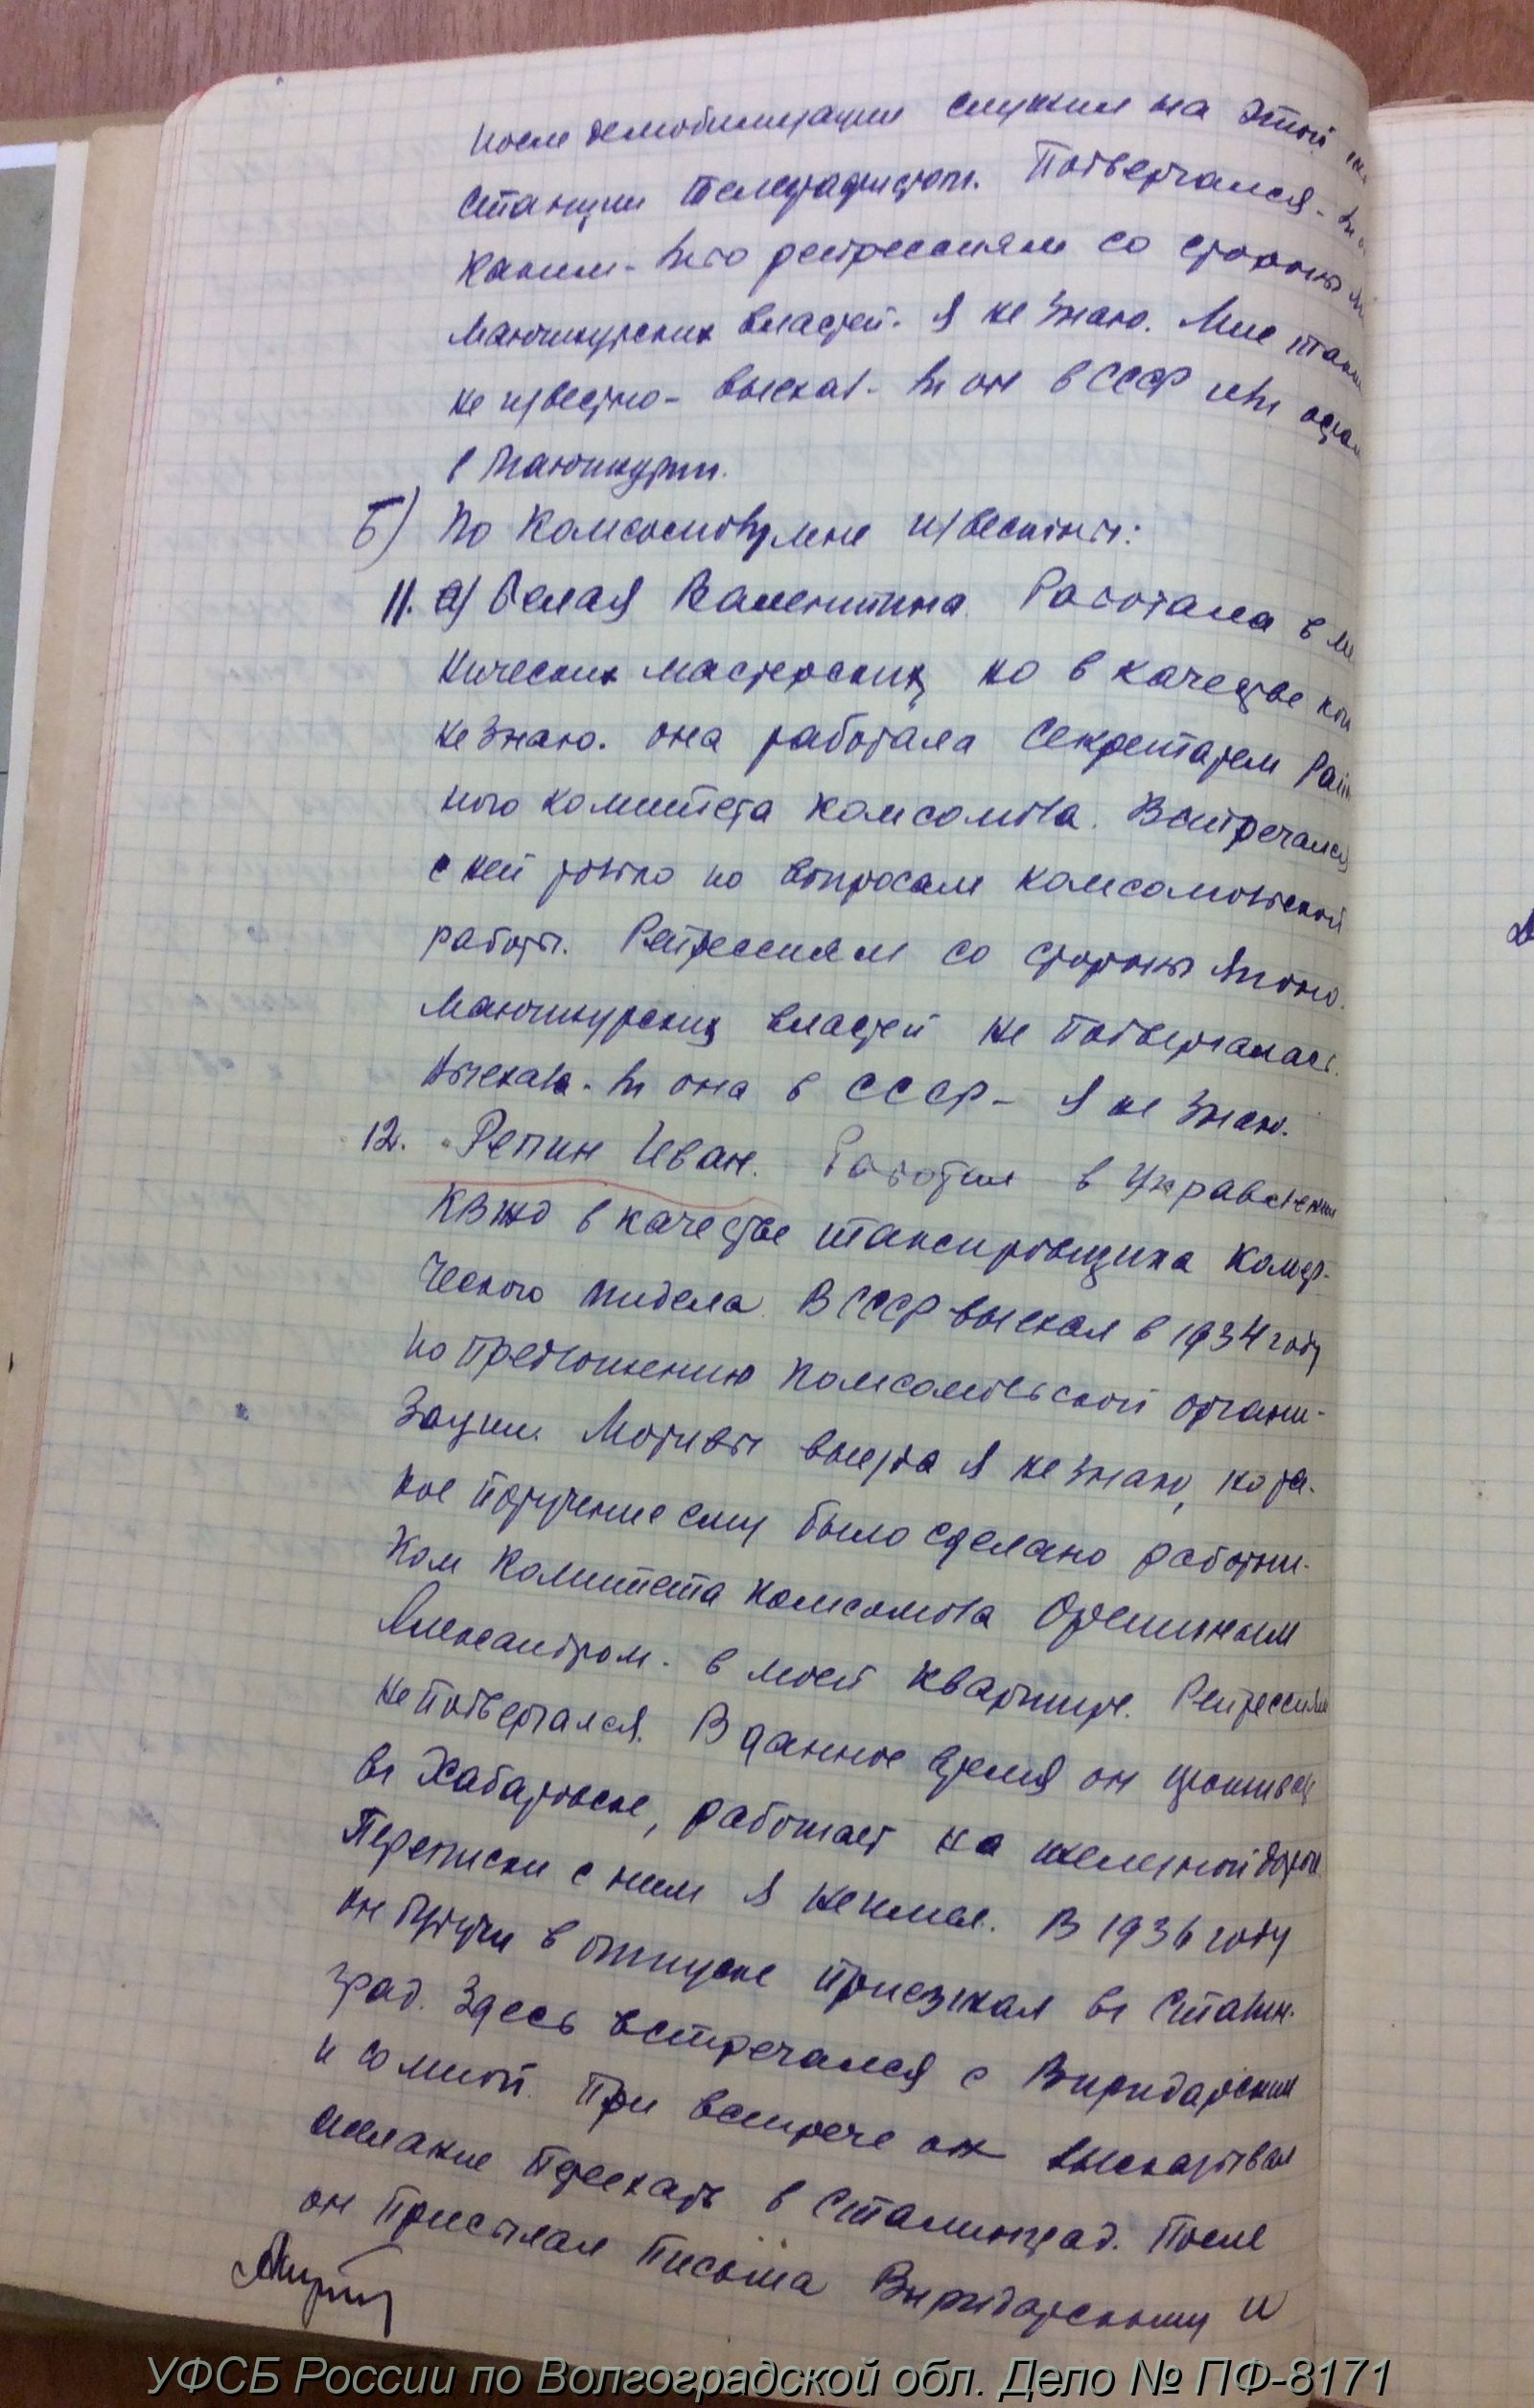 после демобилизации служил на этой
станции телеграфистом. Подвергался- ли
каким-либо репрессиям со стороны
Манчжурских властей- я не знаю. Мне также
не известно- выехал- ли он в СССР или остал
в Манчжурии.
Б) По Комсомолу мне известны:
11. а) Белая Валентина. Работала в ме
нических мастерских, но в качестве ко
не знаю. она работала секретарем Рай
ного комитета комсомола. Встречался
с ней только по вопросам комсомольской
работы. Репрессиям со стороны Японо-
Манчжурских властей не подвергалась.
Выехала- ли она в СССР- я не знаю.
12. Репин Иван. Работал в Управлении
КВжд в качестве таксировщика комер-
ческого отдела. В СССР выехал в 1934 году
по предложению комсомольской органи-
зации. Мотивы выезда я не знаю, но та-
кое поручение ему было сделано работни-
ком комитета комсомола
Александром- в моей квартире. Репрессиям
не подвергался. В данное время он проживает
в г. Хабаровске, работает на железной дороге.
Переписки с ним я не имел. В 1936 году
он будучи в отпуске приезжал в г. Сталин-
град. Здесь встречался с Виридарским
и со мной. При встрече он высказывал
желание переехать в Сталинград. После
он присылал письма Виридарскому и
УФСБ России по Волгоградской обл. Дело № ПФ-8171